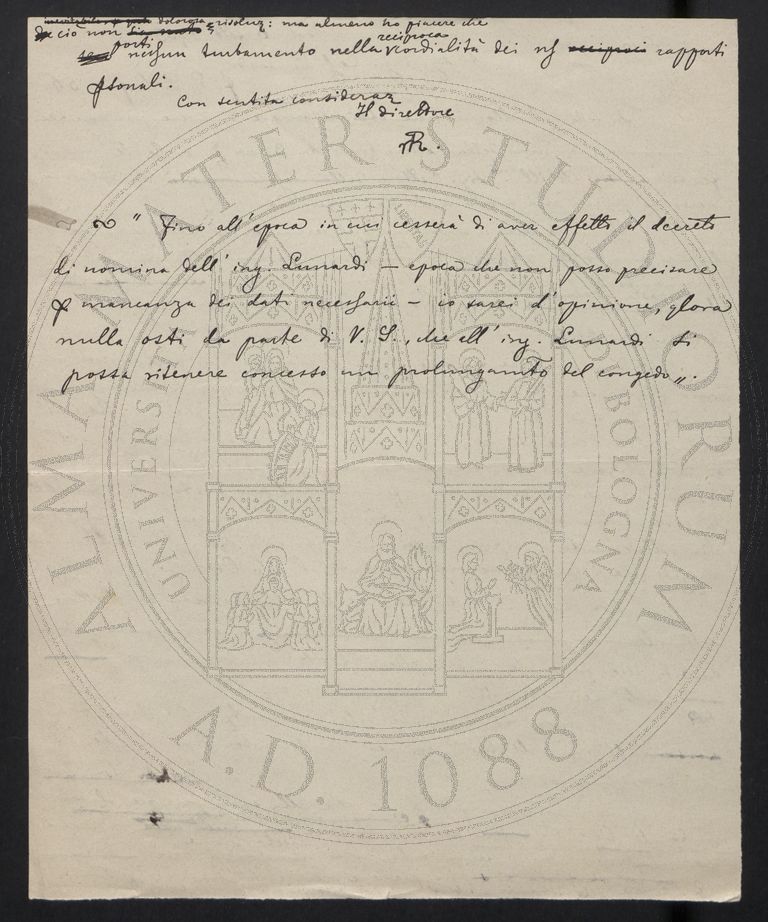 dolorosa risoluz: ma almeno ho piacere che
ciò non porti reciproca
nessun turbamento nella cordialità dei ns rapporti
psonali.
Con sentita consideraz
Il direttore
" Fino all'epoca in cui cesserà di aver effetto il decreto
di nomina dell'ing. Lunardi – epoca che non posso precisare
p mancanza dei dati necessarii – io sarei d'opinione, qlora
nulla osti da parte di V. S., che all'ing. Lunardi si
possa ritenere concesso un prolungamto del congedo„.
ALMA MATER STUDIORUM
UNIVERSITÀ DI BOLOGNA
A.D. 1088